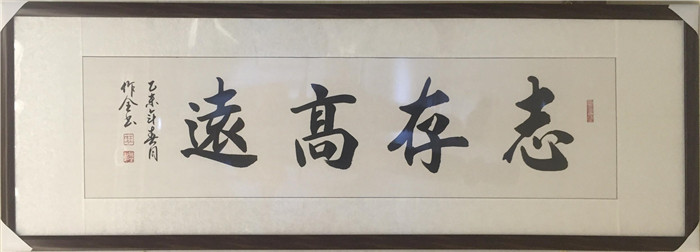 志存高遠
乙未年春月
作金书